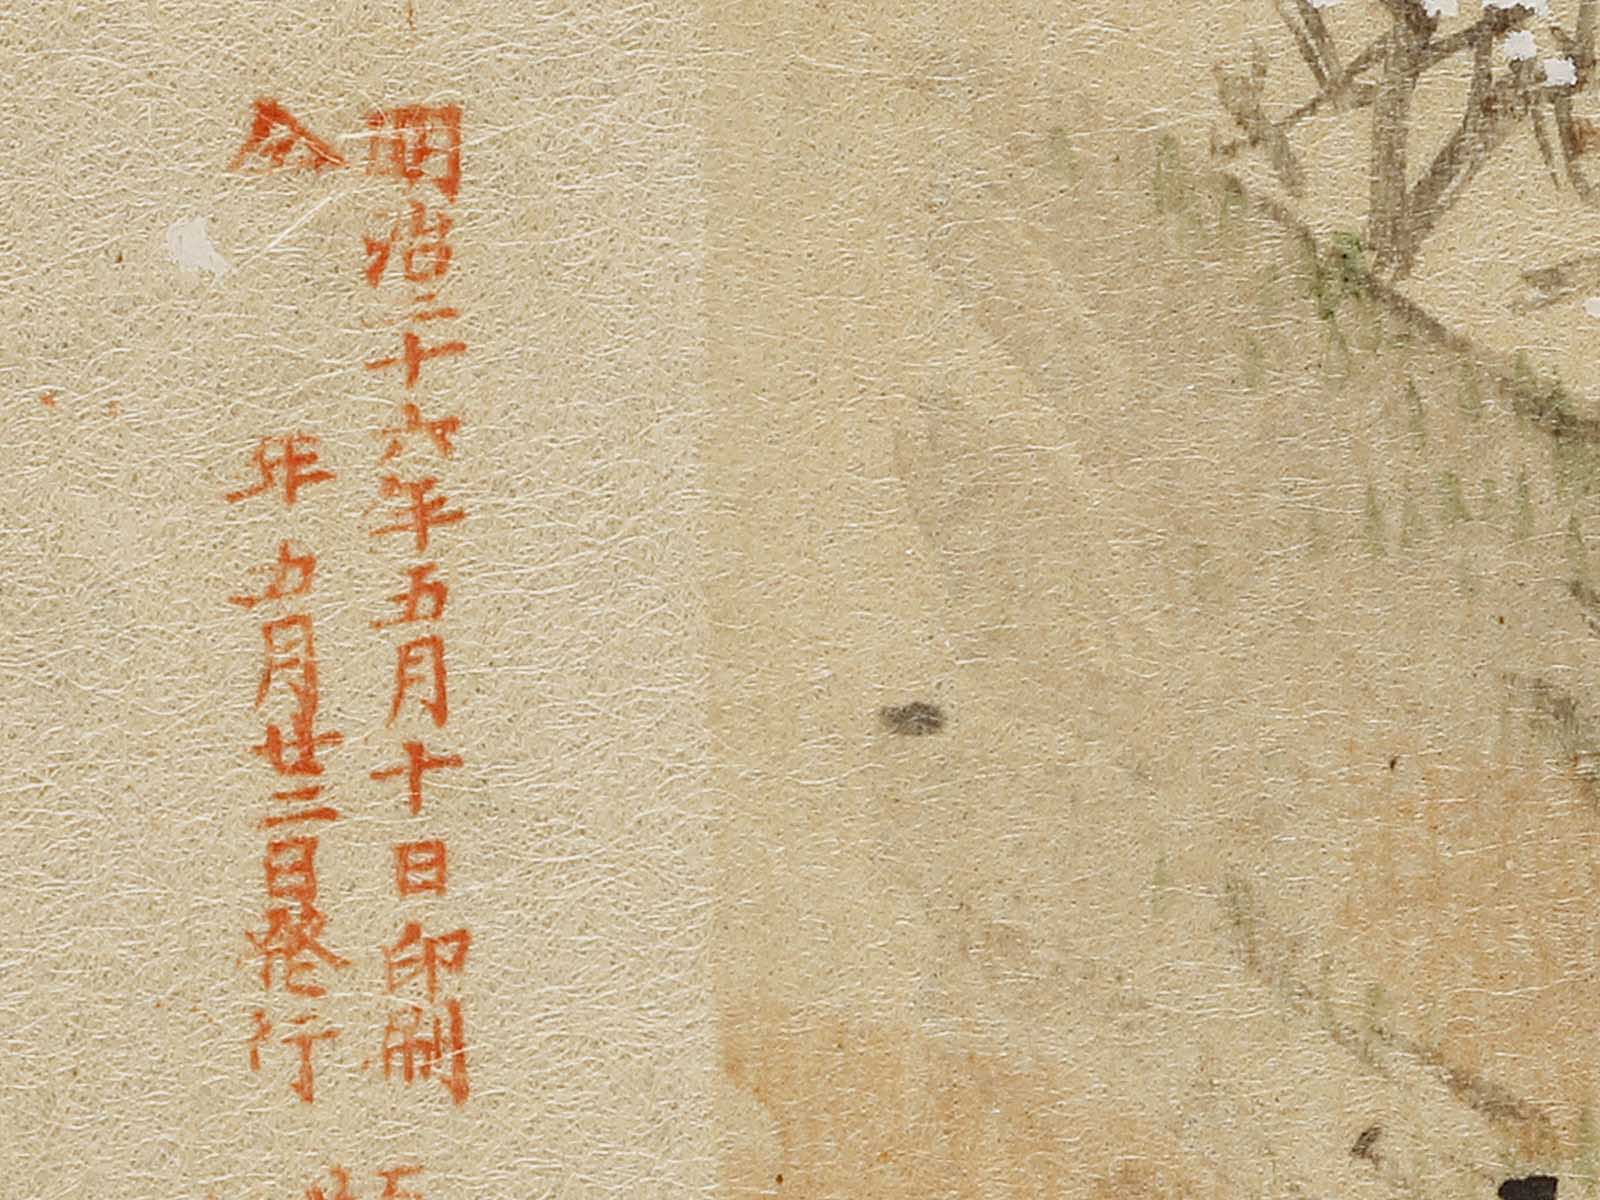 明治三十六年五月十日印刷
仝年五月廿二日発行